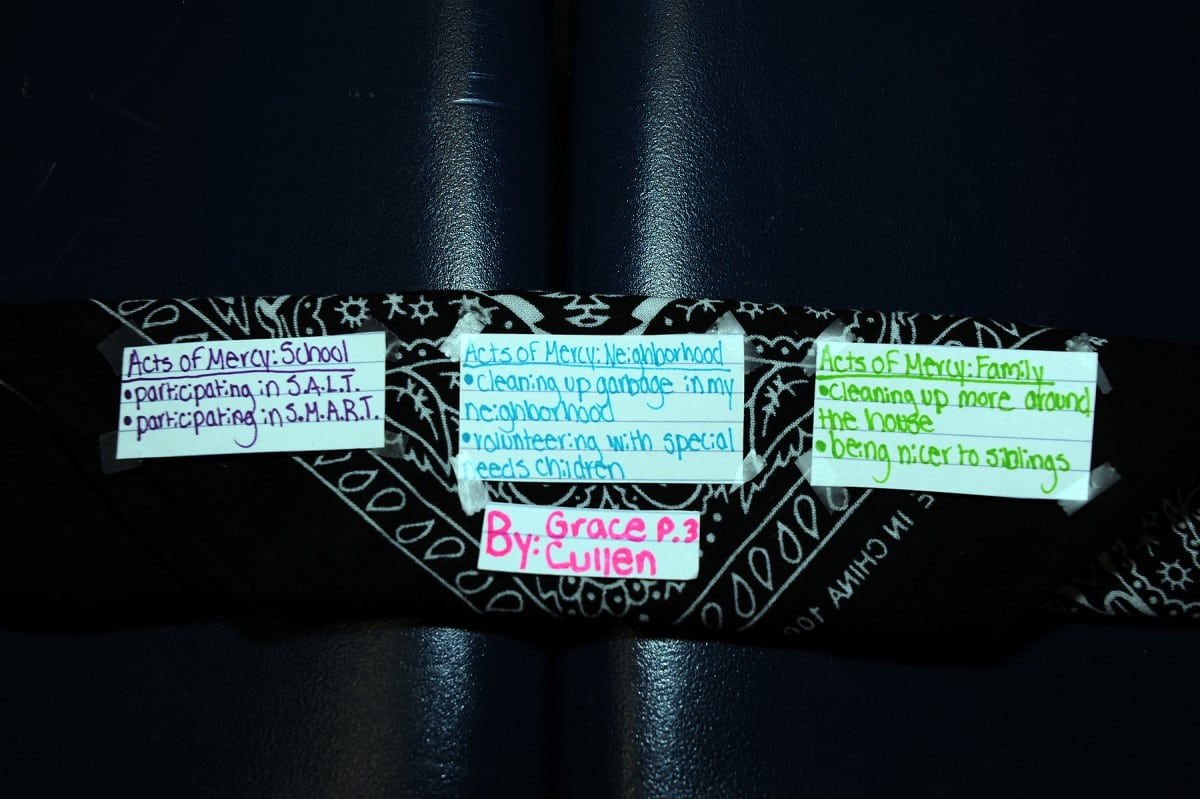 Acts of Mercy: School
• participating in S.A.L.T.
• participating in S.M.A.R.T.
Acts of Mercy: Neighborhood
• cleaning up garbage in my
neighborhood
• volunteering with special
needs children
Acts of Mercy: Family
• cleaning up more around
the house
• being nicer to siblings
By: Grace P.3
Cullen
IN CHINA 100